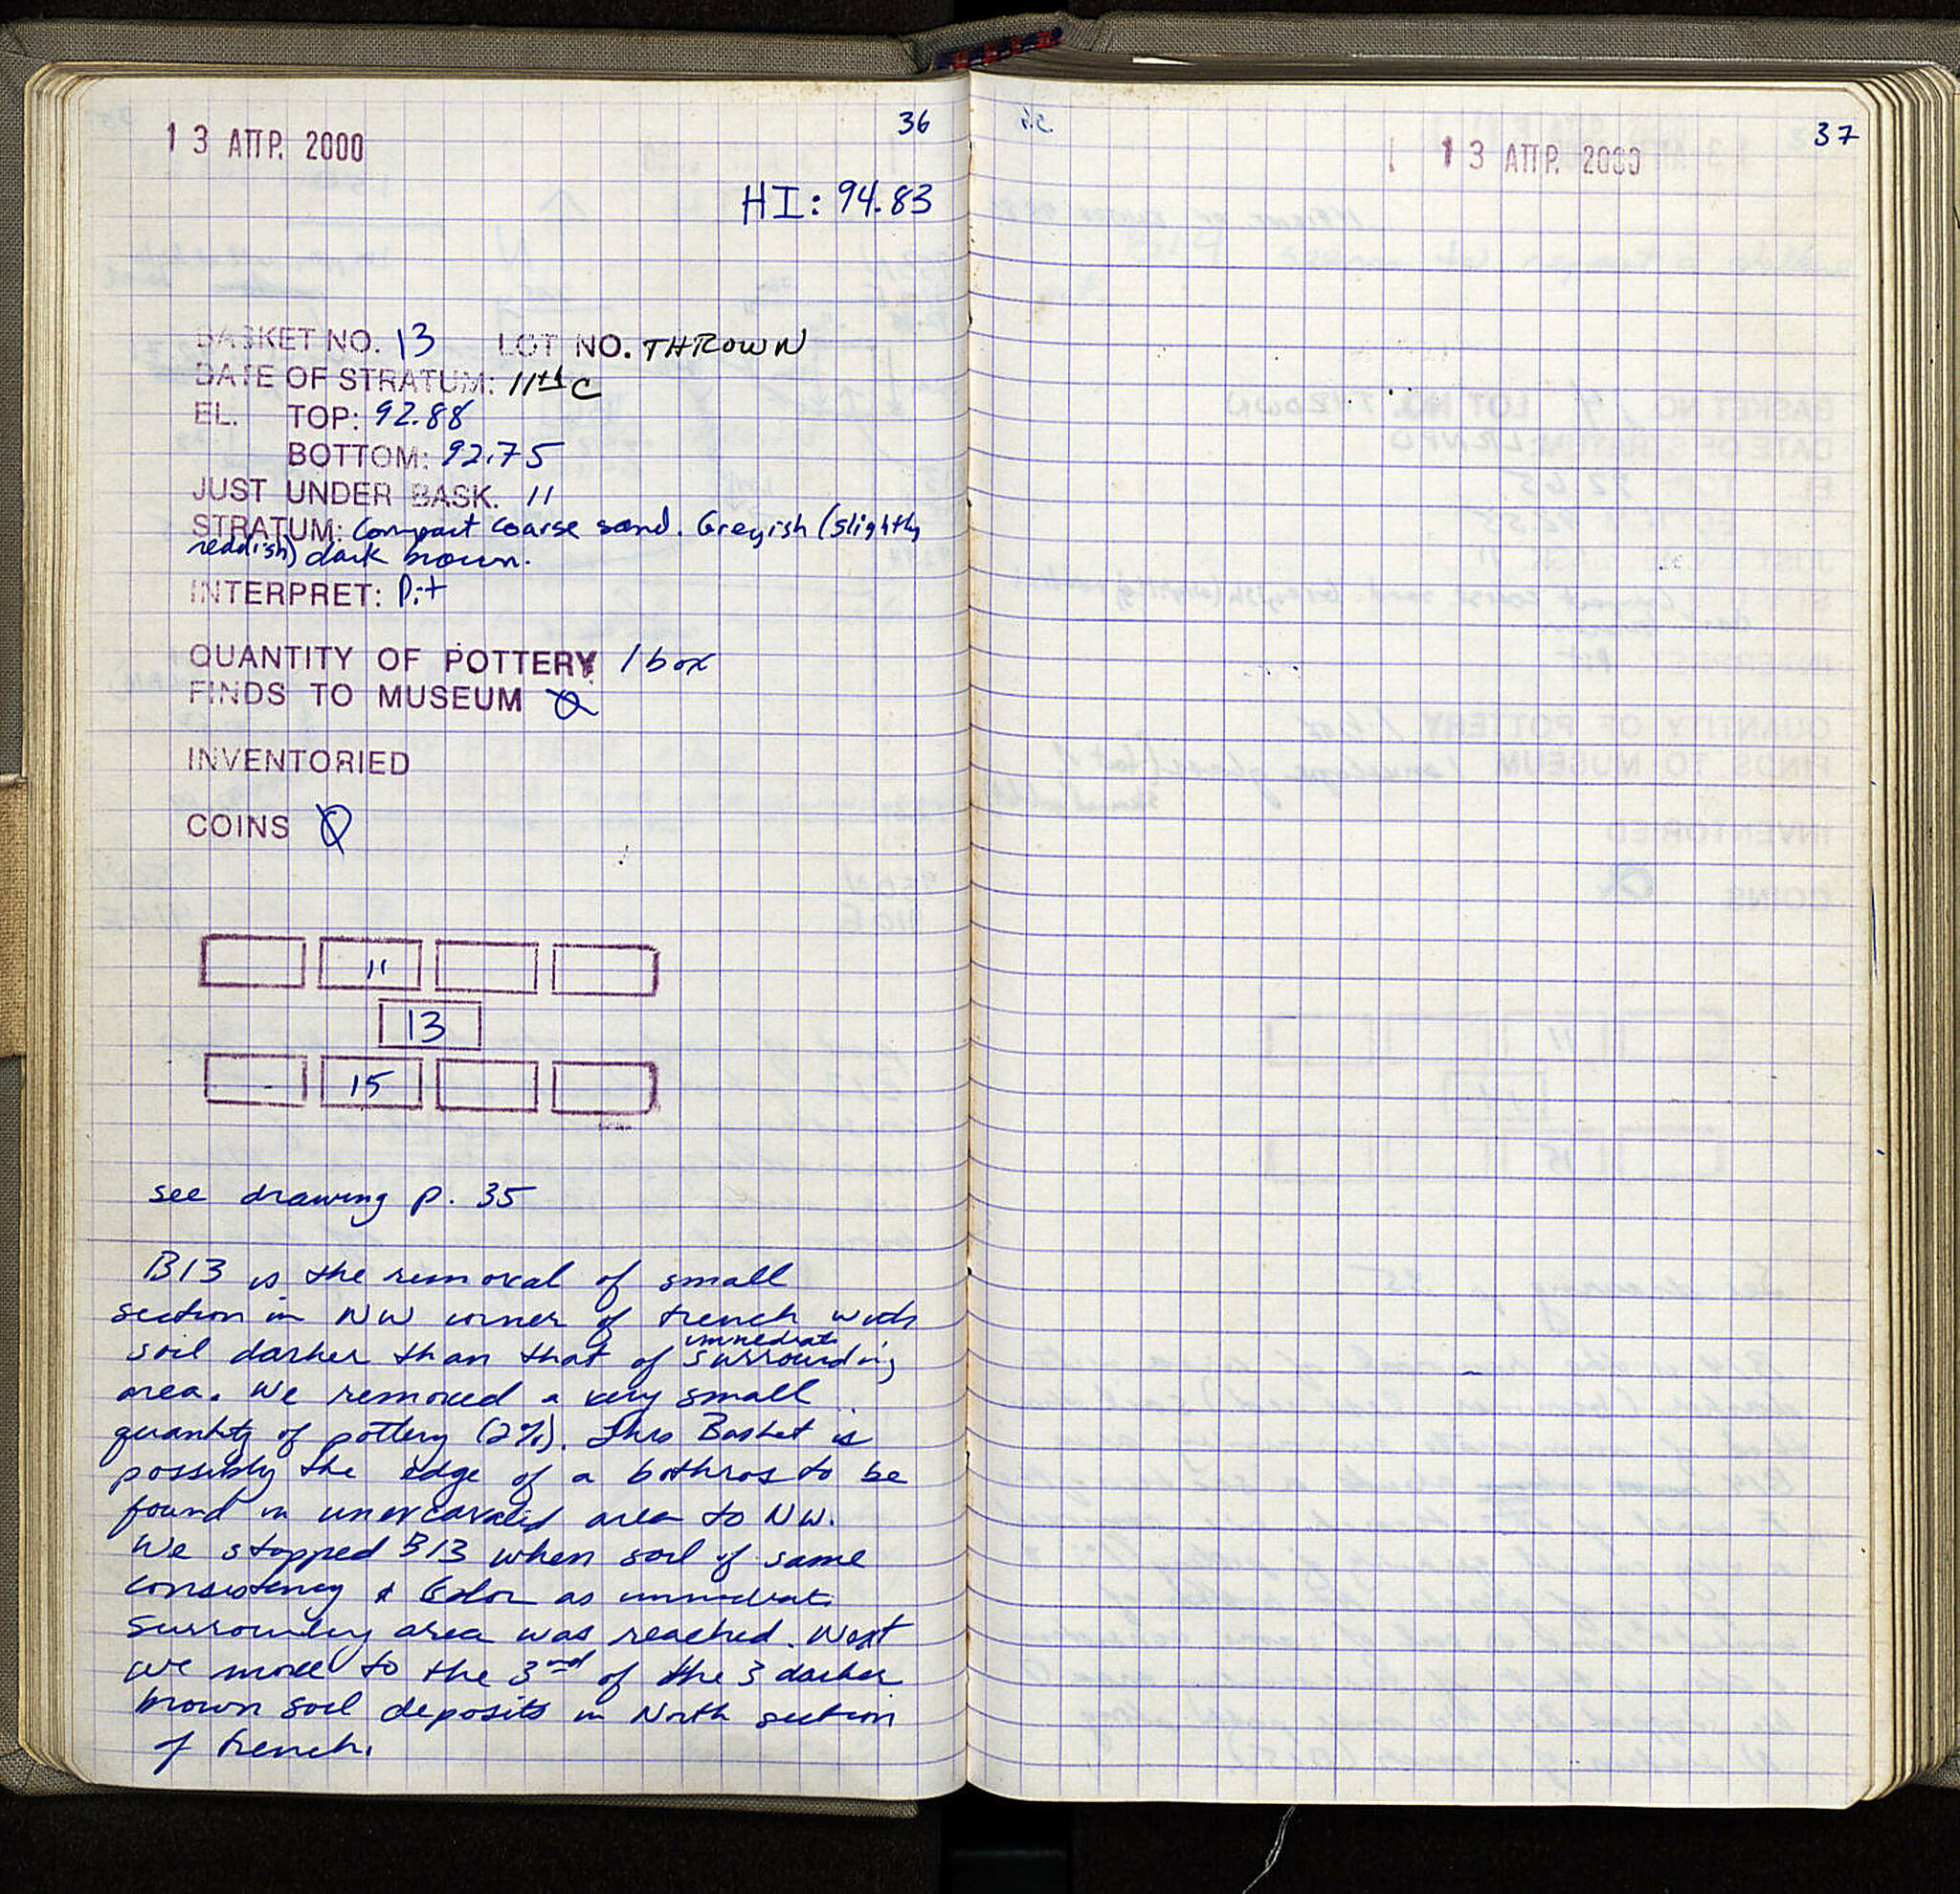 36
13 ΑΠΡ. 2000
HI: 94.83
BASKET NO. 13 LOT NO. THROWN
DATE OF STRATUM: 11th C
EL. TOP: 92.88
BOTTOM: 92.75
JUST UNDER BASK. 11
STRATUM: Compact coarse sand. Greyish (slightly
reddish) dark brown.
INTERPRET: Pit
QUANTITY OF POTTERY 1 box
FINDS TO MUSEUM Ø
INVENTORIED
COINS Ø
11
13
15
see drawing p. 35
B13 is the removal of small
section in NW corner of trench with
soil darker than that of immediate surrounding
area. We removed a very small
quantity of pottery (2%). This Basket is
possibly the edge of a bothros to be
found in unexcavated area to NW.
We stopped B13 when soil of same
consistency & Color as immediate
surrounding area was reached. Next
we move to the 3rd of the 3 darker
brown soil deposits in North section
of trench.
37
13 ΑΠΡ. 2000